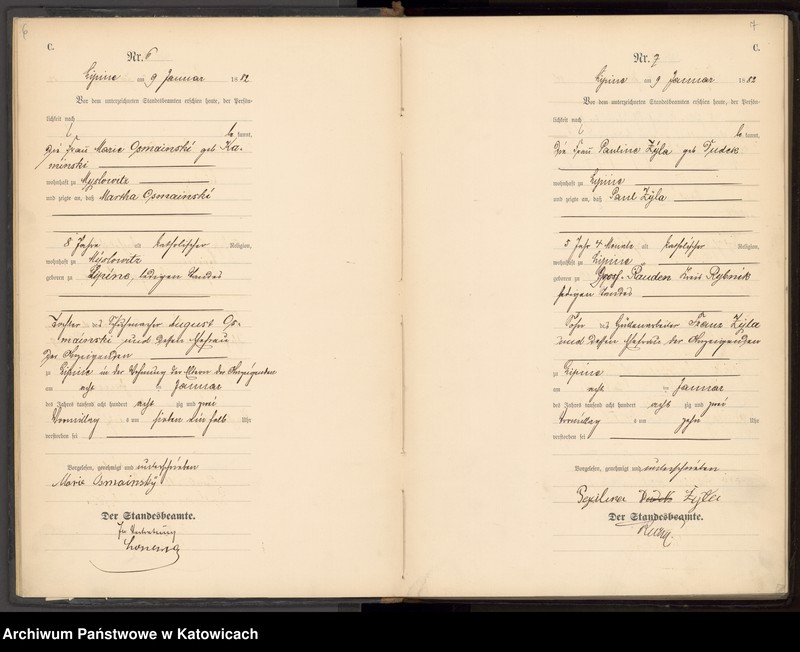 6
C.
Nr. 6
Lipine am 9 Januar 1882
Vor dem unterzeichneten Standesbeamten erschien heute, der Persön-
lichkeit nach
be kannt,
die Frau Marie Osmainski geb Ka-
minski
wohnhaft zu Myslowitz
und zeigte an, daß Martha Osmainski
8 Jahre alt katholischer Religion,
wohnhaft zu Myslowitz
geboren zu Lipine, ledigen Standes
Tochter des Schuhmacher August Os-
mainski und dessen Ehefrau
der Anzeigenden
zu Lipine in der Wohnung der Eltern der Anzeigenden
am acht ten Januar
des Jahres tausend acht hundert acht zig und zwei
Vormittag s um sieben ein halb Uhr
verstorben sei
Vorgelesen, genehmigt und unterschrieben
Marie Osmainsky
Der Standesbeamte.
In Vertretung
7
C.
Nr. 7
Lipine am 9 Januar 1882
Vor dem unterzeichneten Standesbeamten erschien heute, der Persön-
lichkeit nach
be kannt,
die Frau Pauline Zyla geb Dudek
wohnhaft zu Lipine
und zeigte an, daß Paul Zyla
5 Jahr 4 Monate alt katholischer Religion,
wohnhaft zu Lipine
geboren zu Gross-Rauden Kreis Rybnik
ledigen Standes
Sohn des Hüttenarbeiter Franz Zyla
und dessen Ehefrau der Anzeigenden
zu Lipine
am acht ten Januar
des Jahres tausend acht hundert acht zig und zwei
Vormittag s um zehn Uhr
verstorben sei
Vorgelesen, genehmigt und unterschrieben
Paulina Zyla
Der Standesbeamte.
Archiwum Państwowe w Katowicach